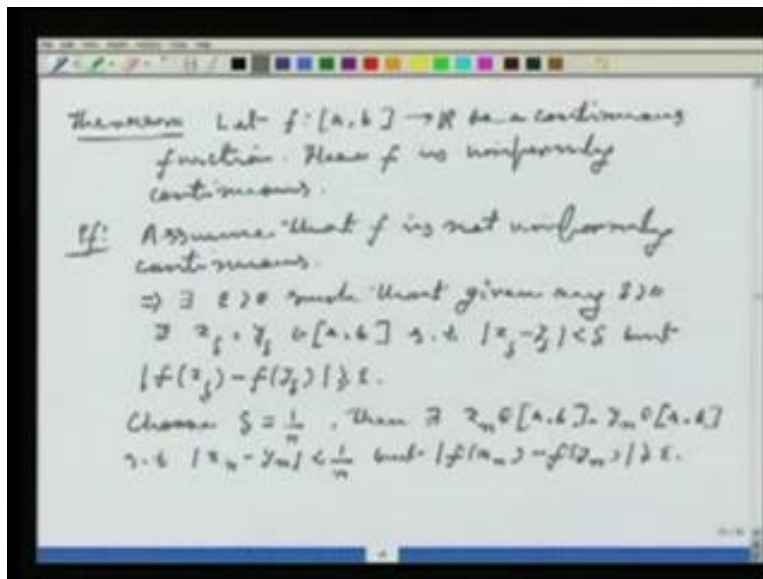 Theorem Let f: [a, b] → R be a continuous
function. Then f is uniformly
continuous.
Pf: Assume that f is not uniformly
continuous.
⇒ ∃ ε > 0 such that given any δ > 0
∃ x_δ, y_δ ∈ [a, b] s.t |x_δ - y_δ| < δ but
|f(x_δ) - f(y_δ)| ≥ ε.
Choose δ = 1/n, then ∃ x_n ∈ [a, b], y_n ∈ [a, b]
s.t |x_n - y_n| < 1/n but |f(x_n) - f(y_n)| ≥ ε.